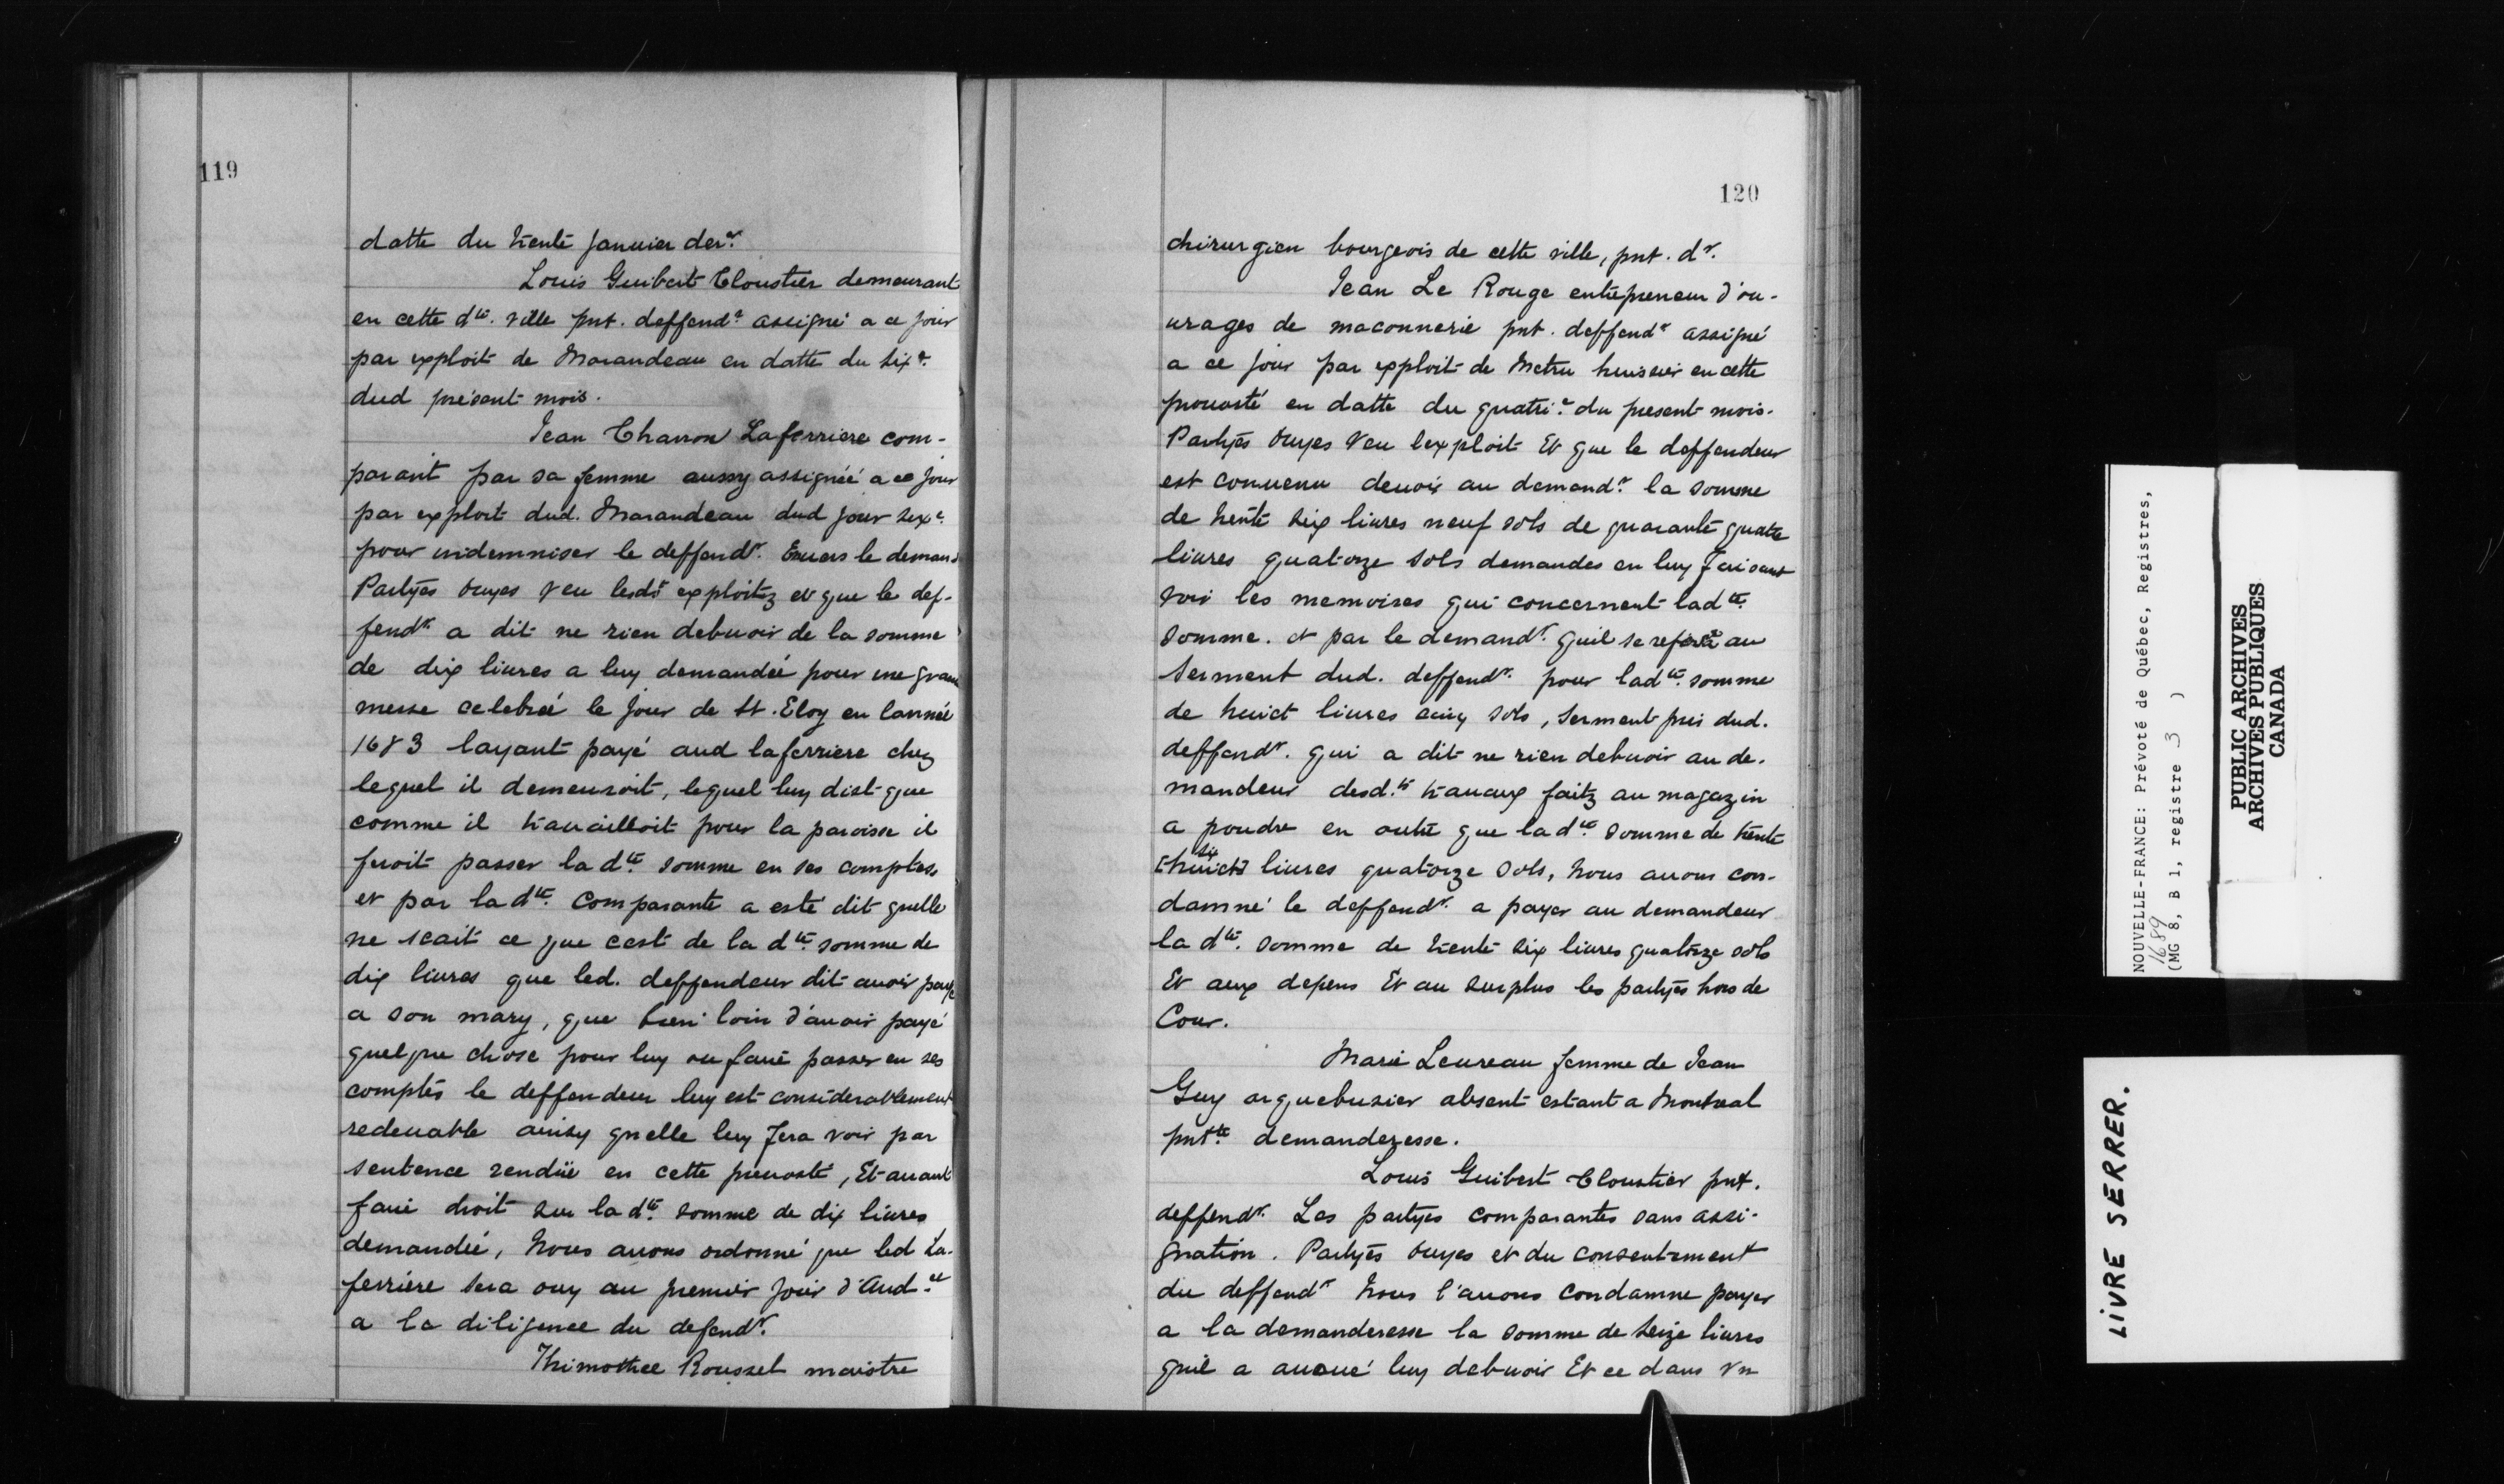 119
datte du trente Januier der.r
Louis Guibert Cloustier demeurant
en cette d.te ville pnt. deffend.r assigné a ce jour
par exploit de Marandeau en datte du six.e
dud présent mois.
Jean Charron Laferriere com-
parant par sa femme aussy assignéé a ce jour
par exploit dud. Marandeau dud jour six.e
pour indemniser le deffend.r Enuers le demand
Partyes ouyes Veu lesd.s exploitz et que le def-
fend.r a dit ne rien debuoir de la somme
de dix liures a luy demandéé pour une grande
messe celebréé le jour de St. Eloy en lannéé
1683 layant payé aud laferriere chez
lequel il demeuroit, lequel luy dict que
comme il trauailloit pour la paroisse il
feroit passer la d.te somme en ses comptes
et par la d.te Comparante a esté dit quelle
ne scait ce que cest de la d.te somme de
dix liures que led. deffendeur dit auoir payé
a son mary, que bien loin d'auoir payé
quelque chose pour luy ou faire passer en ses
comptes le deffendeur luy est considerablement
redeuable ainsy quelle luy fera voir par
sentence rendüe en cette preuosté, Et auant
faire droit sur la d.te somme de dix liures
demandéé, Nous auons ordonné que led La-
ferriere sera ouy au premier jour d'Aud.ce
a la diligence du defend.r
Thimothee Roussel maistre
120
chirurgien bourgeois de cette ville, pnt. d.r
Jean Le Rouge entrepreneur d'ou-
urages de maconnerie pnt. deffend.r assigné
a ce jour par exploit de Metru huissier en cette
preuosté en datte du quatri.e du present mois.
Partyes Ouyes Veu lexploit Et que le deffendeur
est conuenu deuoir au demand.r la somme
de trente six liures neuf sols de quarante quatre
liures quatorze sols demandes en luy Faisant
voir les memoires qui concernent lad.te
somme. et par le demand.r quil se refere au
Serment dud. deffend.r pour lad.te somme
de huict liures cinq sols, Serment pris dud.
deffend.r qui a dit ne rien debuoir au de-
mandeur desd.ts trauaux faitz au magazin
a poudre en outre que la d.te somme de trente
six
[huict] liures quatorze sols, Nous auons con-
damné le deffend.r a payer au demandeur
la d.te somme de trente six liures quatorze sols
Et aux depens Et au surplus les partyes hors de
Cour.
Marie Leureau femme de Jean
Guy arquebusier absent estant a Montreal
pnt.te demanderesse.
Louis Guibert Cloustier pnt.
deffend.r Les partyes comparantes sans assi-
gnation. Partyes Ouyes et du consentement
du deffend.r Nous l'auons condamne payer
a la demanderesse la somme de seize liures
quil a auoué luy debuoir Et ce dans vn
NOUVELLE-FRANCE: Prévoté de Québec, Registres,
1689
(MG 8, B 1, registre 3 )
PUBLIC ARCHIVES
ARCHIVES PUBLIQUES
CANADA
LIVRE SERRER.